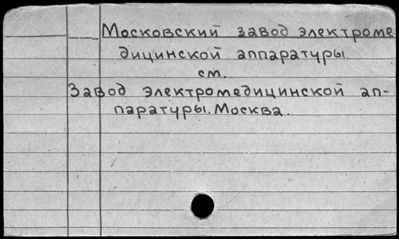 Московский завод электроме
дицинской аппаратуры.
см.
Завод электромедицинской ап-
паратуры. Москва.